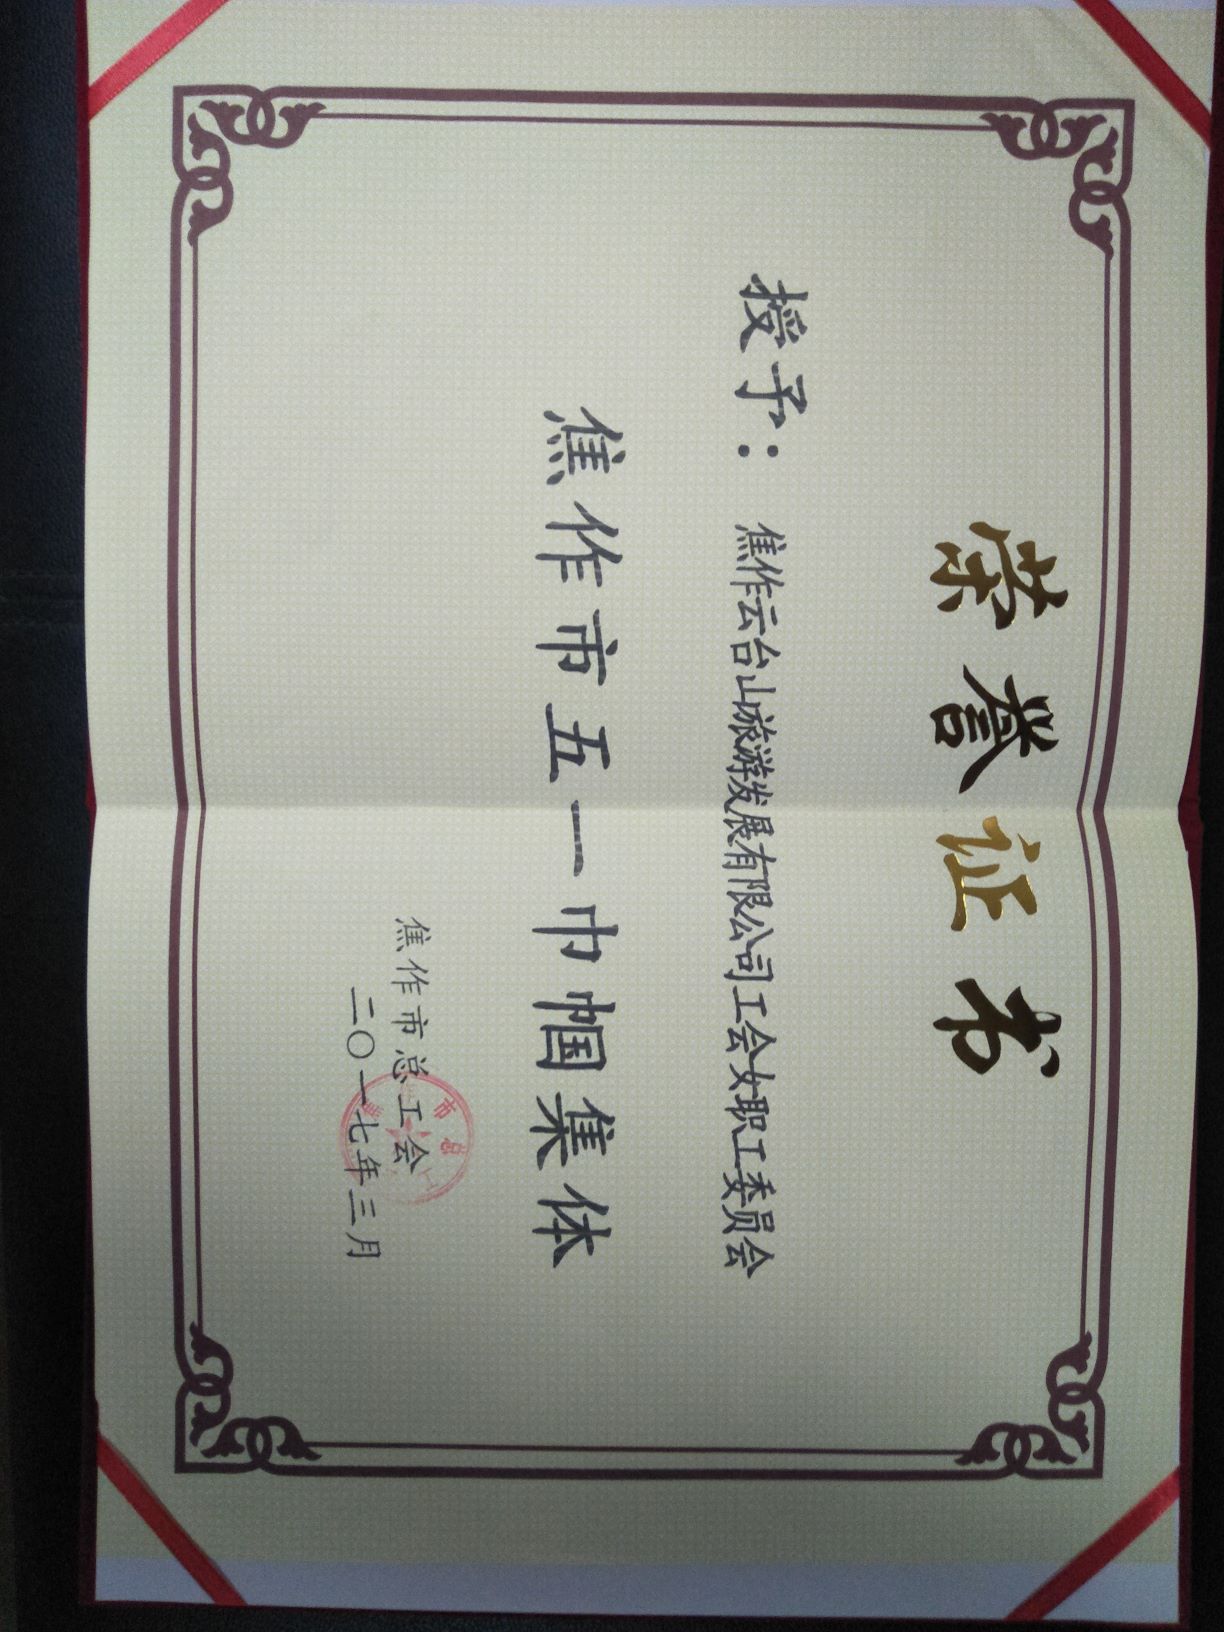 荣誉证书
授予：焦作云台山旅游发展有限公司工会女职工委员会
焦作市五一巾帼集体
焦作市总工会
二〇一七年三月